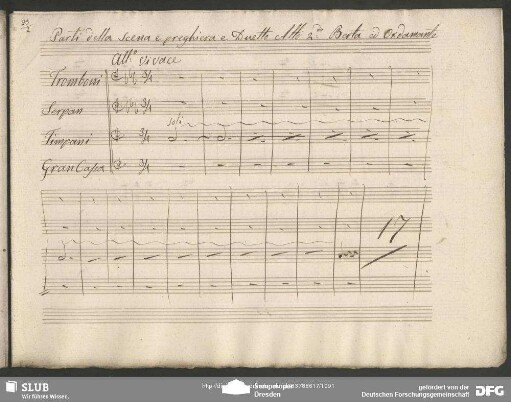 Parti della Scena e preghiera e Duetto Atto 2do Berta ed Ordamante
All.o vivace
Tromboni
Serpan
soli
Timpani
Gran Cassa
17
SLUB
Wir führen Wissen.
Dresden
gefördert von der
Deutschen Forschungsgemeinschaft
DFG